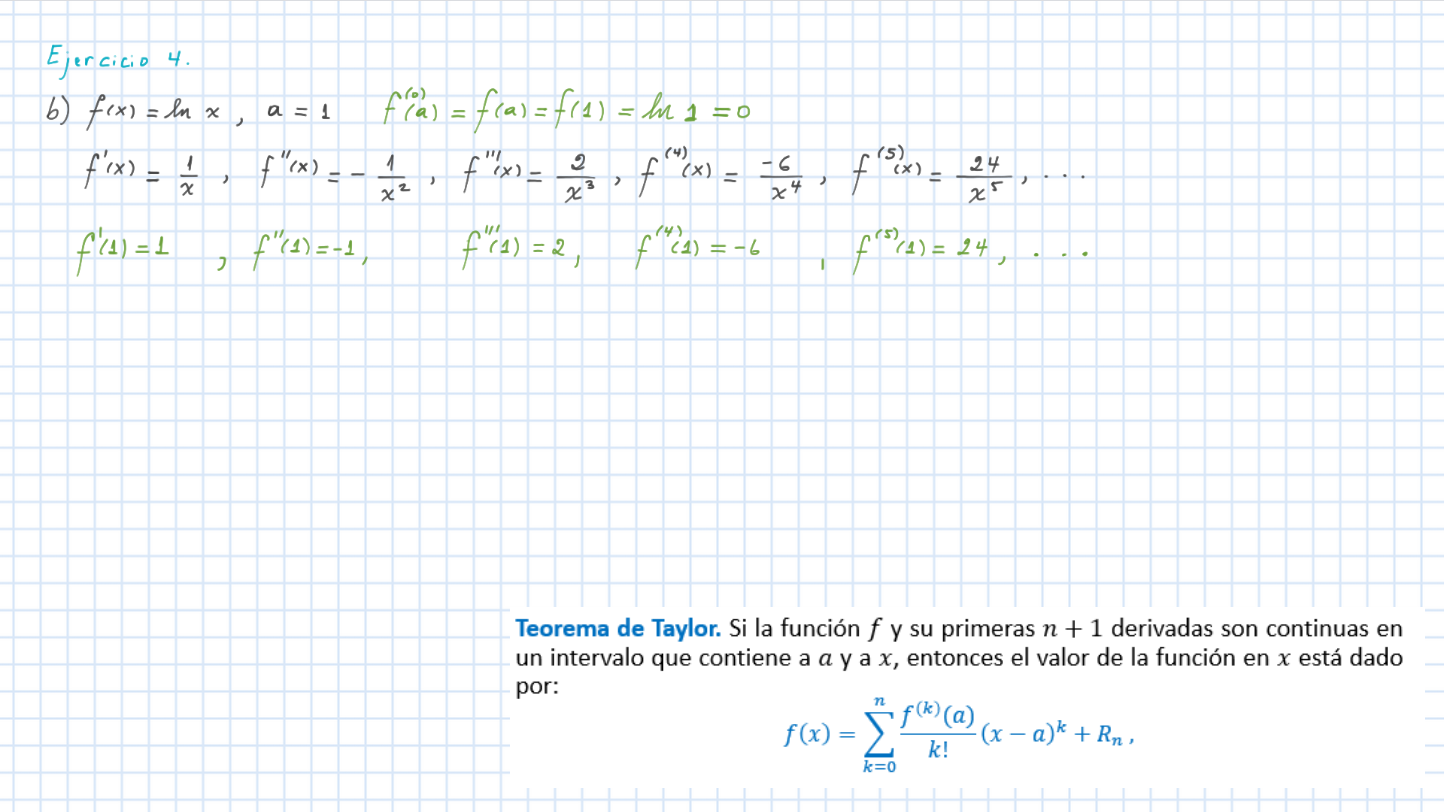 Ejercicio 4.
b) f(x) = ln x , a = 1 f⁽⁰⁾(a) = f(a) = f(1) = ln 1 = 0
f'(x) = 1/x , f''(x) = - 1/x² , f'''(x) = 2/x³ , f⁽⁴⁾(x) = -6/x⁴ , f⁽⁵⁾(x) = 24/x⁵ , ...
f'(1) = 1 , f''(1) = -1 , f'''(1) = 2 , f⁽⁴⁾(1) = -6 , f⁽⁵⁾(1) = 24 , ...
Teorema de Taylor. Si la función f y su primeras n + 1 derivadas son continuas en
un intervalo que contiene a a y a x, entonces el valor de la función en x está dado
por:
f(x) = ∑_{k=0}^{n} f⁽ᵏ⁾(a)/k! (x − a)ᵏ + Rₙ ,